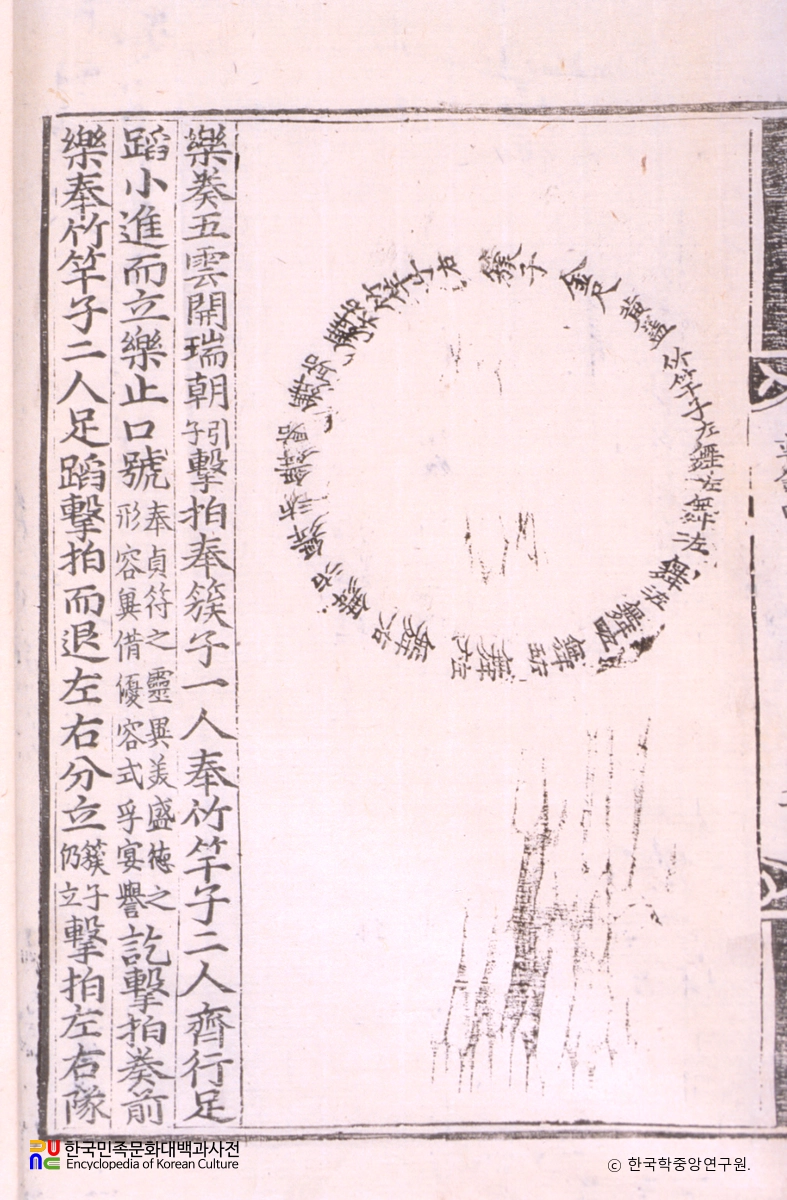 簇子
金尺
黃蓋
竹竿子左
舞左
舞左
舞左
舞
舞
舞左
舞右
舞右
舞右
舞右
竹竿子右
樂奏五雲開瑞朝引子擊拍奉簇子一人奉竹竿子二人齊行足
蹈小進而立樂止口號奉貞符之靈異美盛德之形容冀借優容式孚宴譽訖擊拍奏前
樂奉竹竿子二人足蹈擊拍而退左右分立簇子仍立擊拍左右隊
한국민족문화대백과사전
Encyclopedia of Korean Culture
© 한국학중앙연구원.